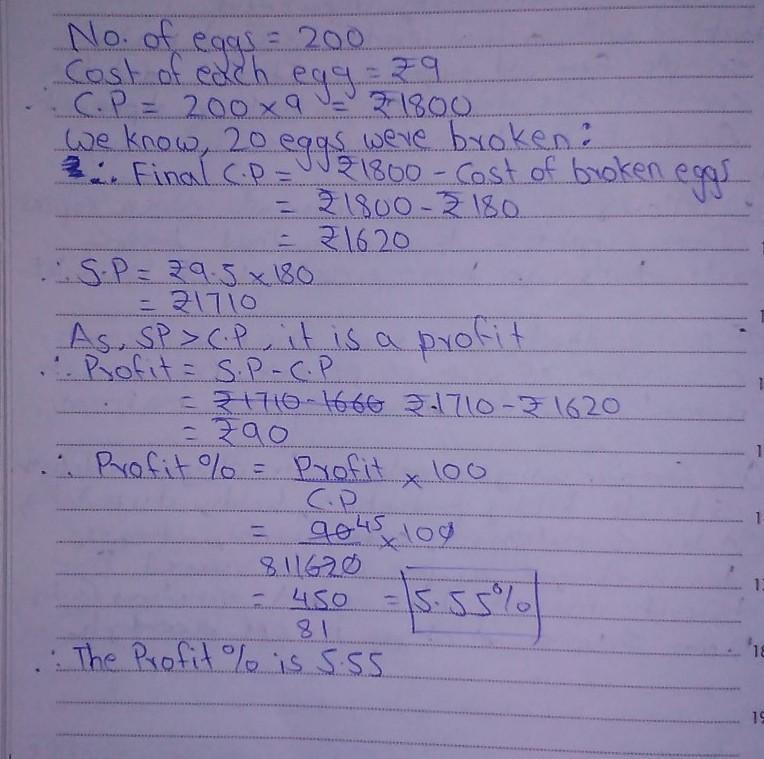 No. of eggs = 200
Cost of each egg = ₹9
∴ C.P = 200 × 9 = ₹1800
We know, 20 eggs were broken:
∴ Final C.P = ₹1800 - Cost of broken eggs
= ₹1800 - ₹180
= ₹1620
∴ S.P = ₹9.5 × 180
= ₹1710
As, SP > C.P, it is a profit
∴ Profit = S.P - C.P
= ₹1710 - 1660 ₹1710 - ₹1620
= ₹90
∴ Profit % = Profit × 100
C.P
= 90 45 × 100
81 1620
= 450 = 5.55%
81
∴ The Profit % is 5.55